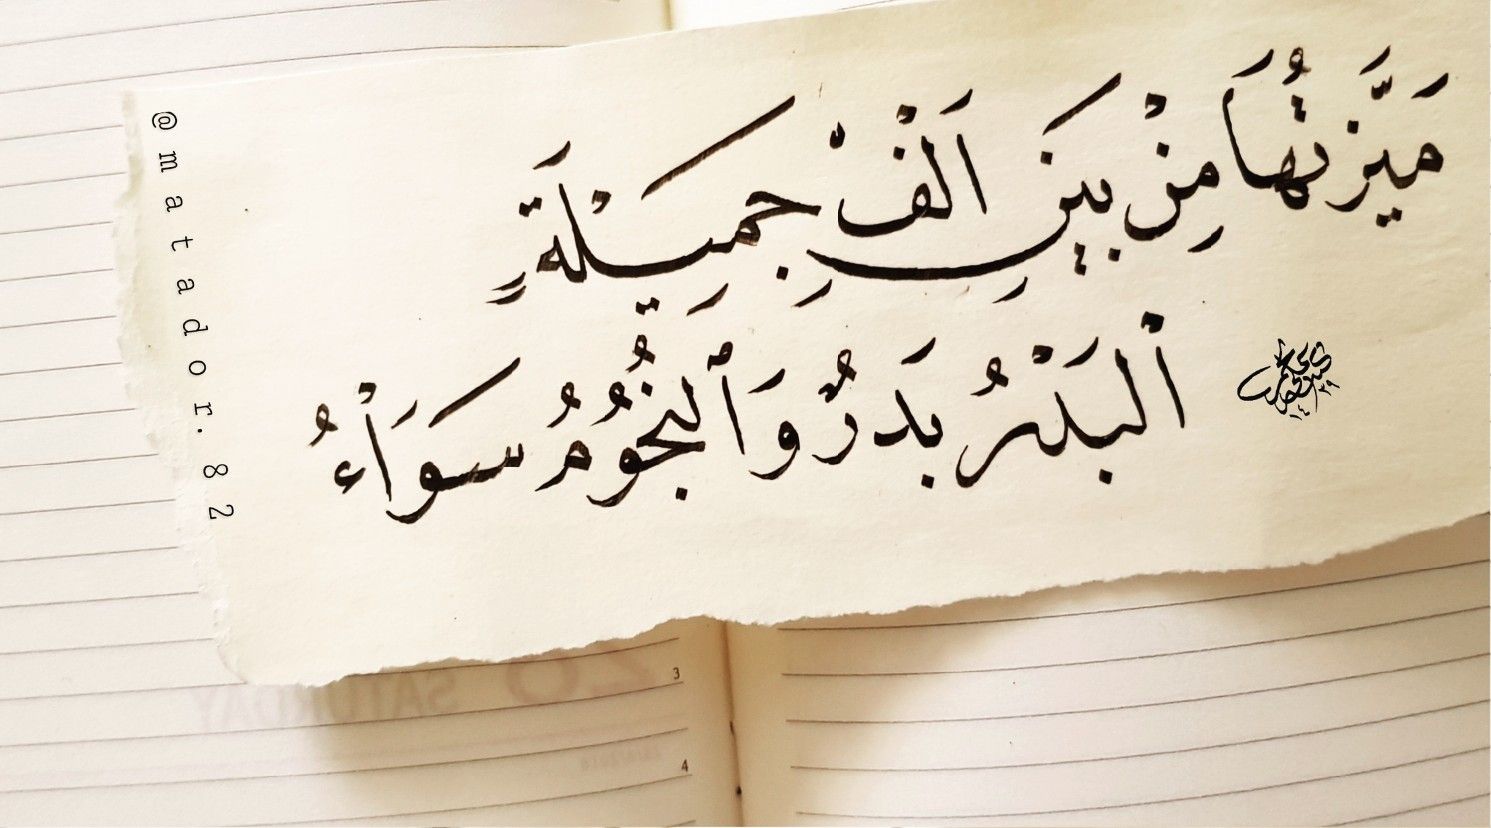 مَيَّزتُهَا مِنْ بَينِ اَلْفْ جَمِيَلْةٍ
اْلبَدْرُ بَدَرٌ وَٱلنُجُوُمُ سَوَاْءُ
@matador.82
SATURDAY
3
4